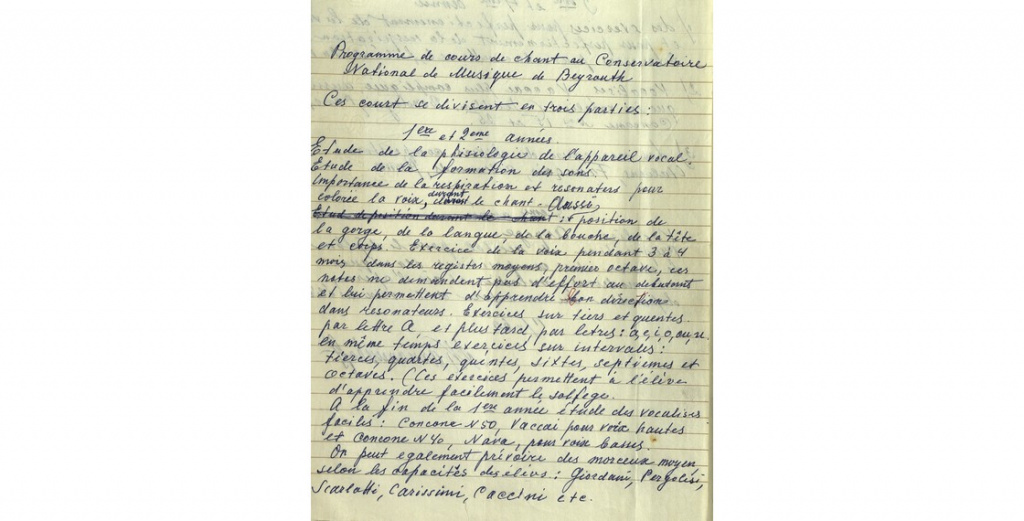 Programme de cours de chant au Conservatoire
National de Musique de Beyrouth
Ces court se divisent en trois parties :
1ere et 2eme années.
Etude de la phisiologie de l'appareil vocal.
Etude de la formation des sons
Importance de la respiration et resonaters pour
colorée la voix, durant le chant. Aussi,
Etud de position durant le chant : position de
la gorge, de la langue, de la bouche, de la tête
et corps. Exercice de la voix pendant 3 à 4
mois, dans les registes moyens, premier octave, ces
notes ne demandent pas d'effort au debutant
et lui permettent d'apprendre bon direction
dans resonateurs. Exercices sur tiers et quentes
par lettre A et plus tard par letres : a, e, i, o, ou, u.
en même temps exercices sur intervalis :
tierces, quartes, quintes, sixtes, septvimes et
octaves. (Ces exercices permettent à l'élève
d'apprendre facilement le solfege.
A la fin de la 1ere année étude des vocalises
facilis : Concone N50, Vaccai pour voix hautes
et Concone N40, Nava, pour voix basses.
On peut egalement prévoire des morceux moyen
selon les capacités des élèvs : Giordani, Pergolisi,
Scarlatti, Carissimi, Caccini etc.